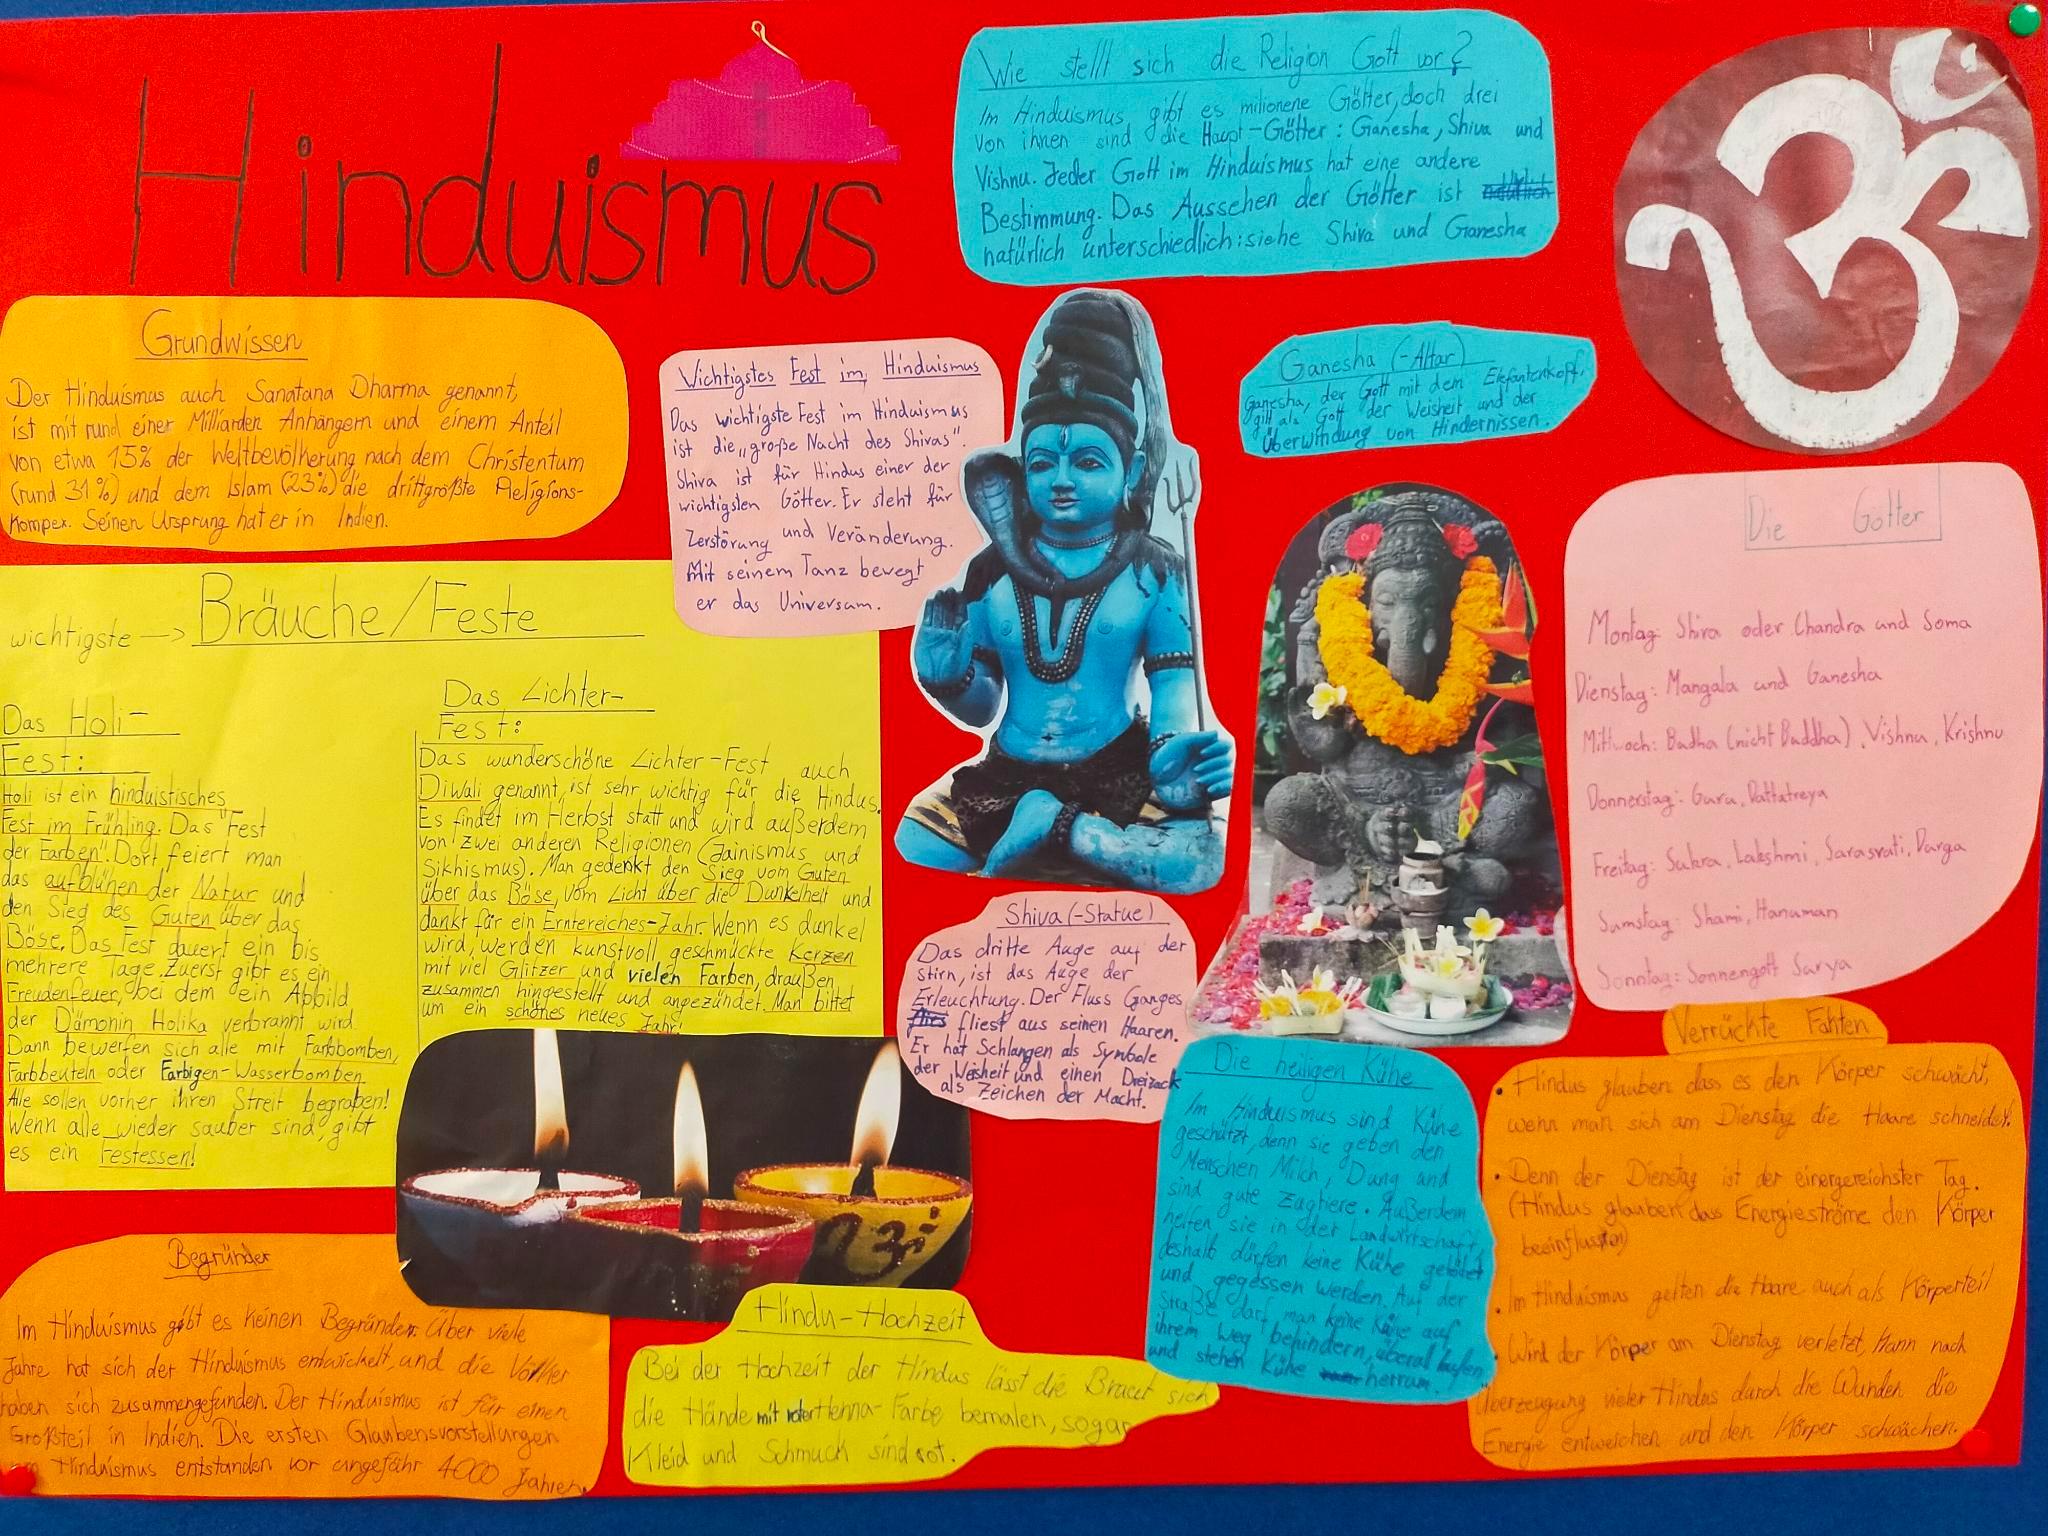 Hinduismus
Wie stellt sich die Religion Gott vor?
Im Hinduismus gibt es milionene Götter, doch drei
von ihnen sind die Haupt-Götter: Ganesha, Shiva und
Vishnu. Jeder Gott im Hinduismus hat eine andere
Bestimmung. Das Aussehen der Götter ist
natürlich unterschiedlich: siehe Shiva und Ganesha
ॐ
Grundwissen
Der Hinduismus auch Sanatana Dharma genannt,
ist mit rund einer Milliarden Anhängern und einem Anteil
von etwa 15% der Weltbevölkerung nach dem Christentum
(rund 31%) und dem Islam (23%) die drittgrößte Religions-
kompex. Seinen Ursprung hat er in Indien.
Wichtigstes Fest im Hinduismus
Das wichtigste Fest im Hinduismus
ist die „große Nacht des Shivas".
Shiva ist für Hindus einer der
wichtigsten Götter. Er steht für
Zerstörung und Veränderung.
Mit seinem Tanz bewegt
er das Universum.
Ganesha (-Altar)
Ganesha, der Gott mit dem Elefantenkopf,
gilt als Gott der Weisheit und der
Überwindung von Hindernissen.
Die Götter
Montag: Shiva oder Chandra und Soma
Dienstag: Mangala und Ganesha
Mittwoch: Budha (nicht Buddha), Vishnu, Krishnu
Donnerstag: Guru, Dattatreya
Freitag: Sukra, Lakshmi, Sarasvati, Durga
Samstag: Shami, Hanuman
Sonntag: Sonnengott Surya
wichtigste → Bräuche/Feste
Das Holi-
Fest:
Holi ist ein hinduistisches
Fest im Frühling. Das "Fest
der Farben". Dort feiert man
das aufblühen der Natur und
den Sieg des Guten über das
Böse. Das Fest dauert ein bis
mehrere Tage. Zuerst gibt es ein
Freudenfeuer, bei dem ein Abbild
der Dämonin Holika verbrannt wird.
Dann bewerfen sich alle mit Farbbomben,
Farbbeuteln oder Farbigen-Wasserbomben
Alle sollen vorher ihren Streit begraben!
Wenn alle wieder sauber sind, gibt
es ein Festessen!
Das Lichter-
Fest:
Das wunderschöne Lichter-Fest auch
Diwali genannt, ist sehr wichtig für die Hindus.
Es findet im Herbst statt und wird außerdem
von zwei anderen Religionen (Jainismus und
Sikhismus). Man gedenkt den Sieg vom Guten
über das Böse, vom Licht über die Dunkelheit und
dankt für ein Erntereiches-Jahr. Wenn es dunkel
wird, werden kunstvoll geschmückte Kerzen
mit viel Glitzer und vielen Farben, draußen
zusammen hingestellt und angezündet. Man bittet
um ein schönes neues Jahr!
Shiva (-Statue)
Das dritte Auge auf der
stirn, ist das Auge der
Erleuchtung. Der Fluss Ganges
fliest aus seinen Haaren.
Er hat Schlangen als Symbole
der Weisheit und einen Dreizack
als Zeichen der Macht.
Die heiligen Kühe
Im Hinduismus sind Kühe
geschützt, denn sie geben den
Menschen Milch, Dung und
sind gute Zugtiere. Außerdem
helfen sie in der Landwirtschaft,
deshalb dürfen keine Kühe getötet
und gegessen werden. Auf der
Straße darf man keine Kühe auf
ihrem Weg behindern, überal laufen
und stehen Kühe herrum.
Verrückte Fahten
• Hindus glauben dass es den Körper schwächt,
wenn man sich am Dienstag die Haare schneidet.
• Denn der Dienstag ist der einergereichster Tag.
(Hindus glauben dass Energieströme den Körper
beeinflussen)
• Im Hinduismus gelten die Haare auch als Körperteil
• Wird der Körper am Dienstag verletet, kann nach
Überzeugung vieler Hindus durch die Wunden die
Energie entweichen und den Körper schwächen.
Begründer
Im Hinduismus gibt es keinen Begründer. Über viele
Jahre hat sich der Hinduismus entwickelt, und die Völker
haben sich zusammengefunden. Der Hinduismus ist für einen
Großteil in Indien. Die ersten Glaubensvorstellungen
Hinduismus entstanden vor ungefähr 4000 Jahren.
Hindu-Hochzeit
Bei der Hochzeit der Hindus lässt die Braut sich
die Hände mit roter Henna-Farbe bemalen, sogar
Kleid und Schmuck sind rot.